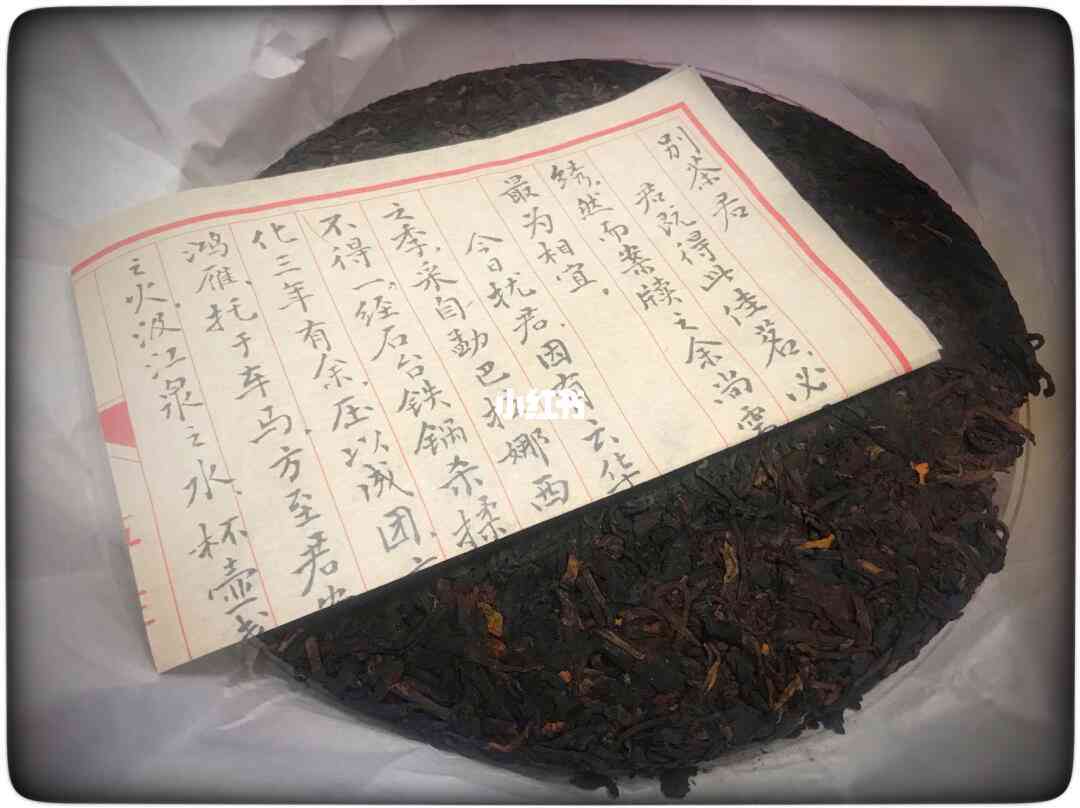 别茶君
君既得此佳茗，必
绩，然而案牍之余尚需
最为相宜，
今日扰君，因有云华
之季，采自勐巴拉娜西
不得一，经石台铁锅杀揉
化三年有余，压以成团，
鸿雁，托于车马，方至君
之火，汲江泉之水，杯壶
小红书